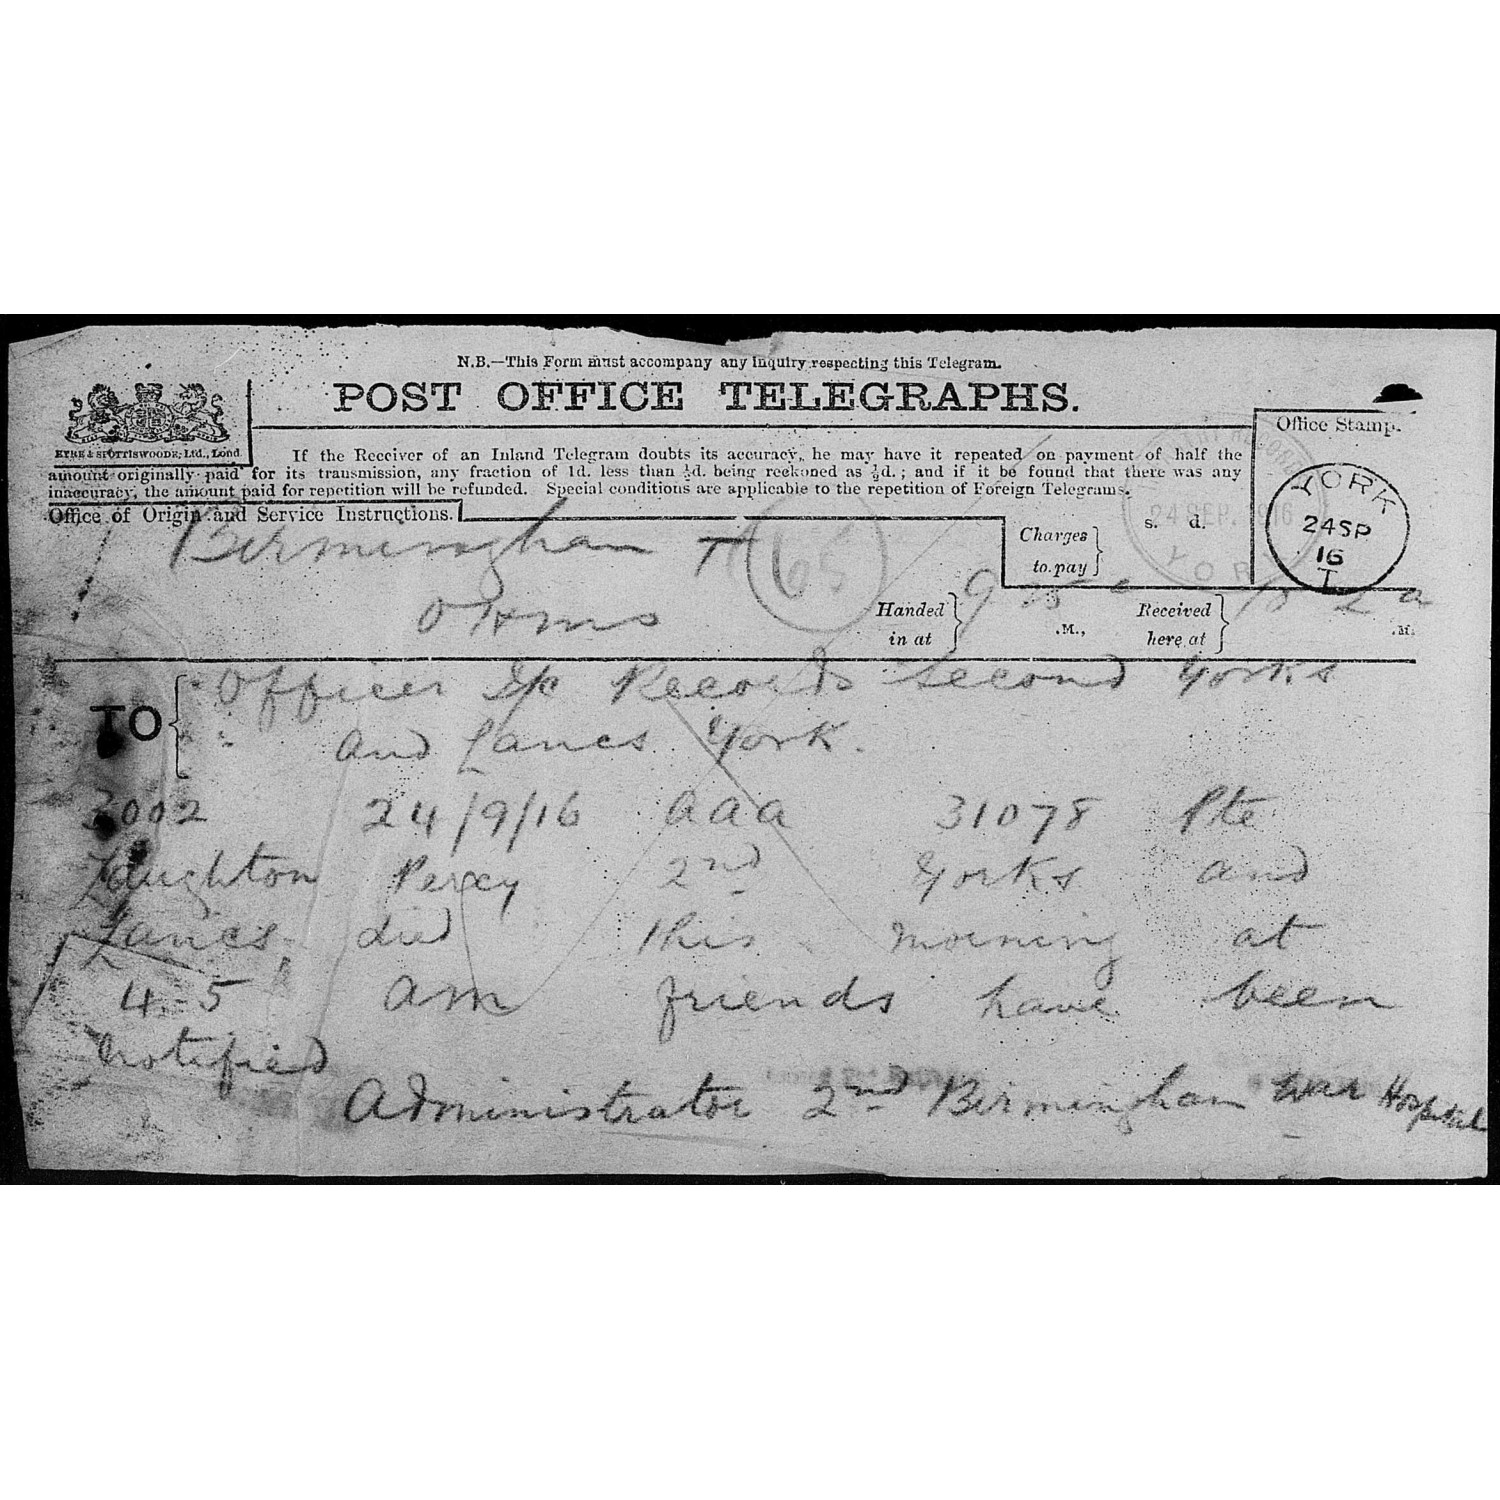 N.B.—This Form must accompany any Inquiry respecting this Telegram.
POST OFFICE TELEGRAPHS.
EYRE & SPOTTISWOODE, Ltd., Lond.
If the Receiver of an Inland Telegram doubts its accuracy, he may have it repeated on payment of half the
amount originally paid for its transmission, any fraction of 1d. less than ½d. being reckoned as ½d.; and if it be found that there was any
inaccuracy, the amount paid for repetition will be refunded. Special conditions are applicable to the repetition of Foreign Telegrams.
Office of Origin and Service Instructions.
Office Stamp.
YORK
24 SP
16
T
24 SEP. 1916
YORK
Charges to pay
s. d.
Birmingham T
65
OHMS
Handed in at
9 25
.M.,
Received here at
.M.
TO
Officer I/c Records Second Yorks
and Lancs York.
3002 24/9/16 aaa 31078 Pte
Laughton Percy 2nd Yorks and
Lancs died this morning at
4-5 am friends have been
notified
Administrator 2nd Birmingham War Hospital